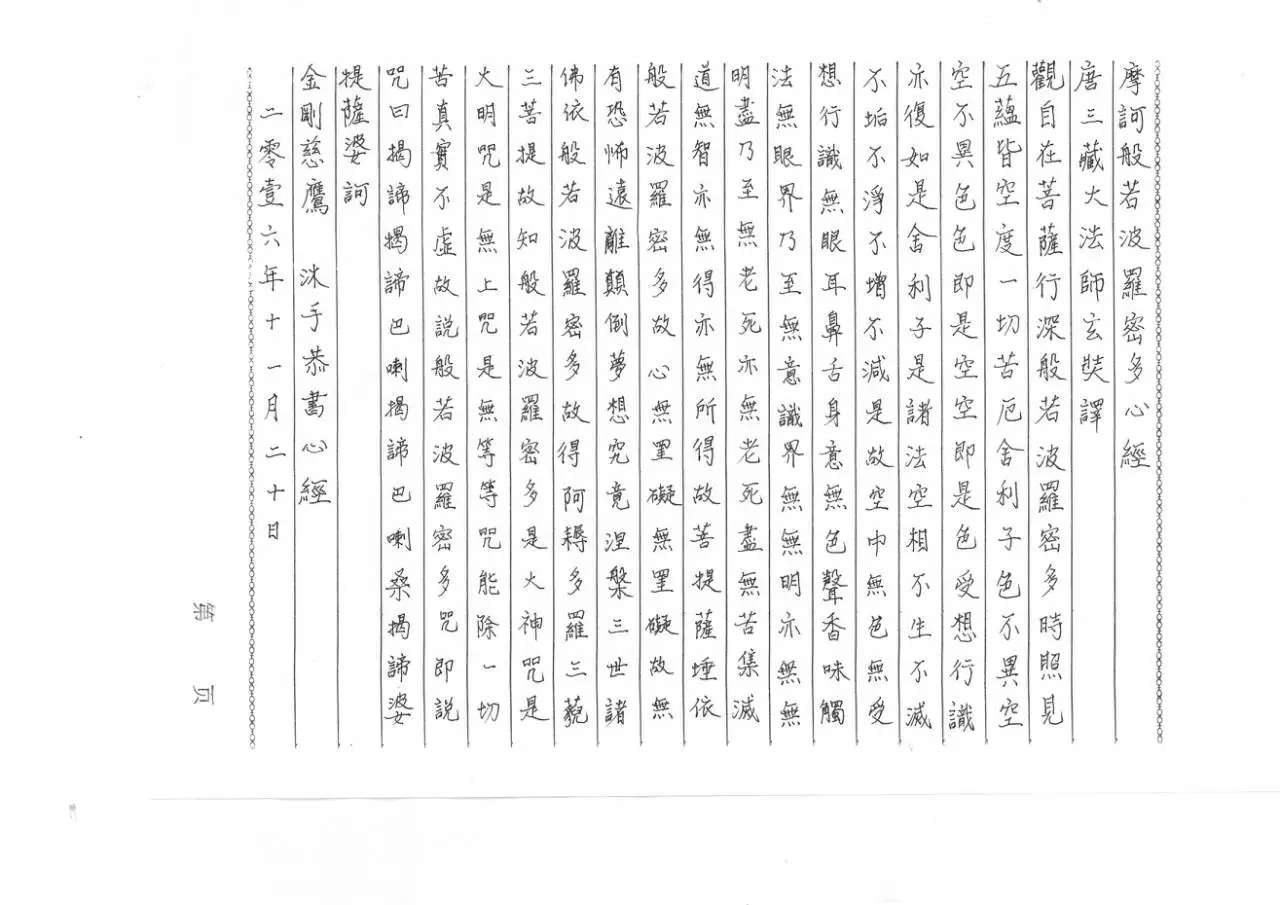 摩訶般若波羅密多心經
唐三藏大法師玄奘譯
觀自在菩薩行深般若波羅密多時照見
五蘊皆空度一切苦厄舍利子色不異空
空不異色色即是空空即是色受想行識
亦復如是舍利子是諸法空相不生不滅
不垢不淨不增不減是故空中無色無受
想行識無眼耳鼻舌身意無色聲香味觸
法無眼界乃至無意識界無無明亦無無
明盡乃至無老死亦無老死盡無苦集滅
道無智亦無得亦無所得故菩提薩埵依
般若波羅密多故心無罣礙無罣礙故無
有恐怖遠離顛倒夢想究竟涅槃三世諸
佛依般若波羅密多故得阿耨多羅三藐
三菩提故知般若波羅密多是大神咒是
大明咒是無上咒是無等等咒能除一切
苦真實不虛故說般若波羅密多咒即說
咒曰揭諦揭諦巴喇揭諦巴喇桑揭諦婆
提薩婆訶
金剛慈鷹 沐手恭書心經
二零壹六年十一月二十日
第 页